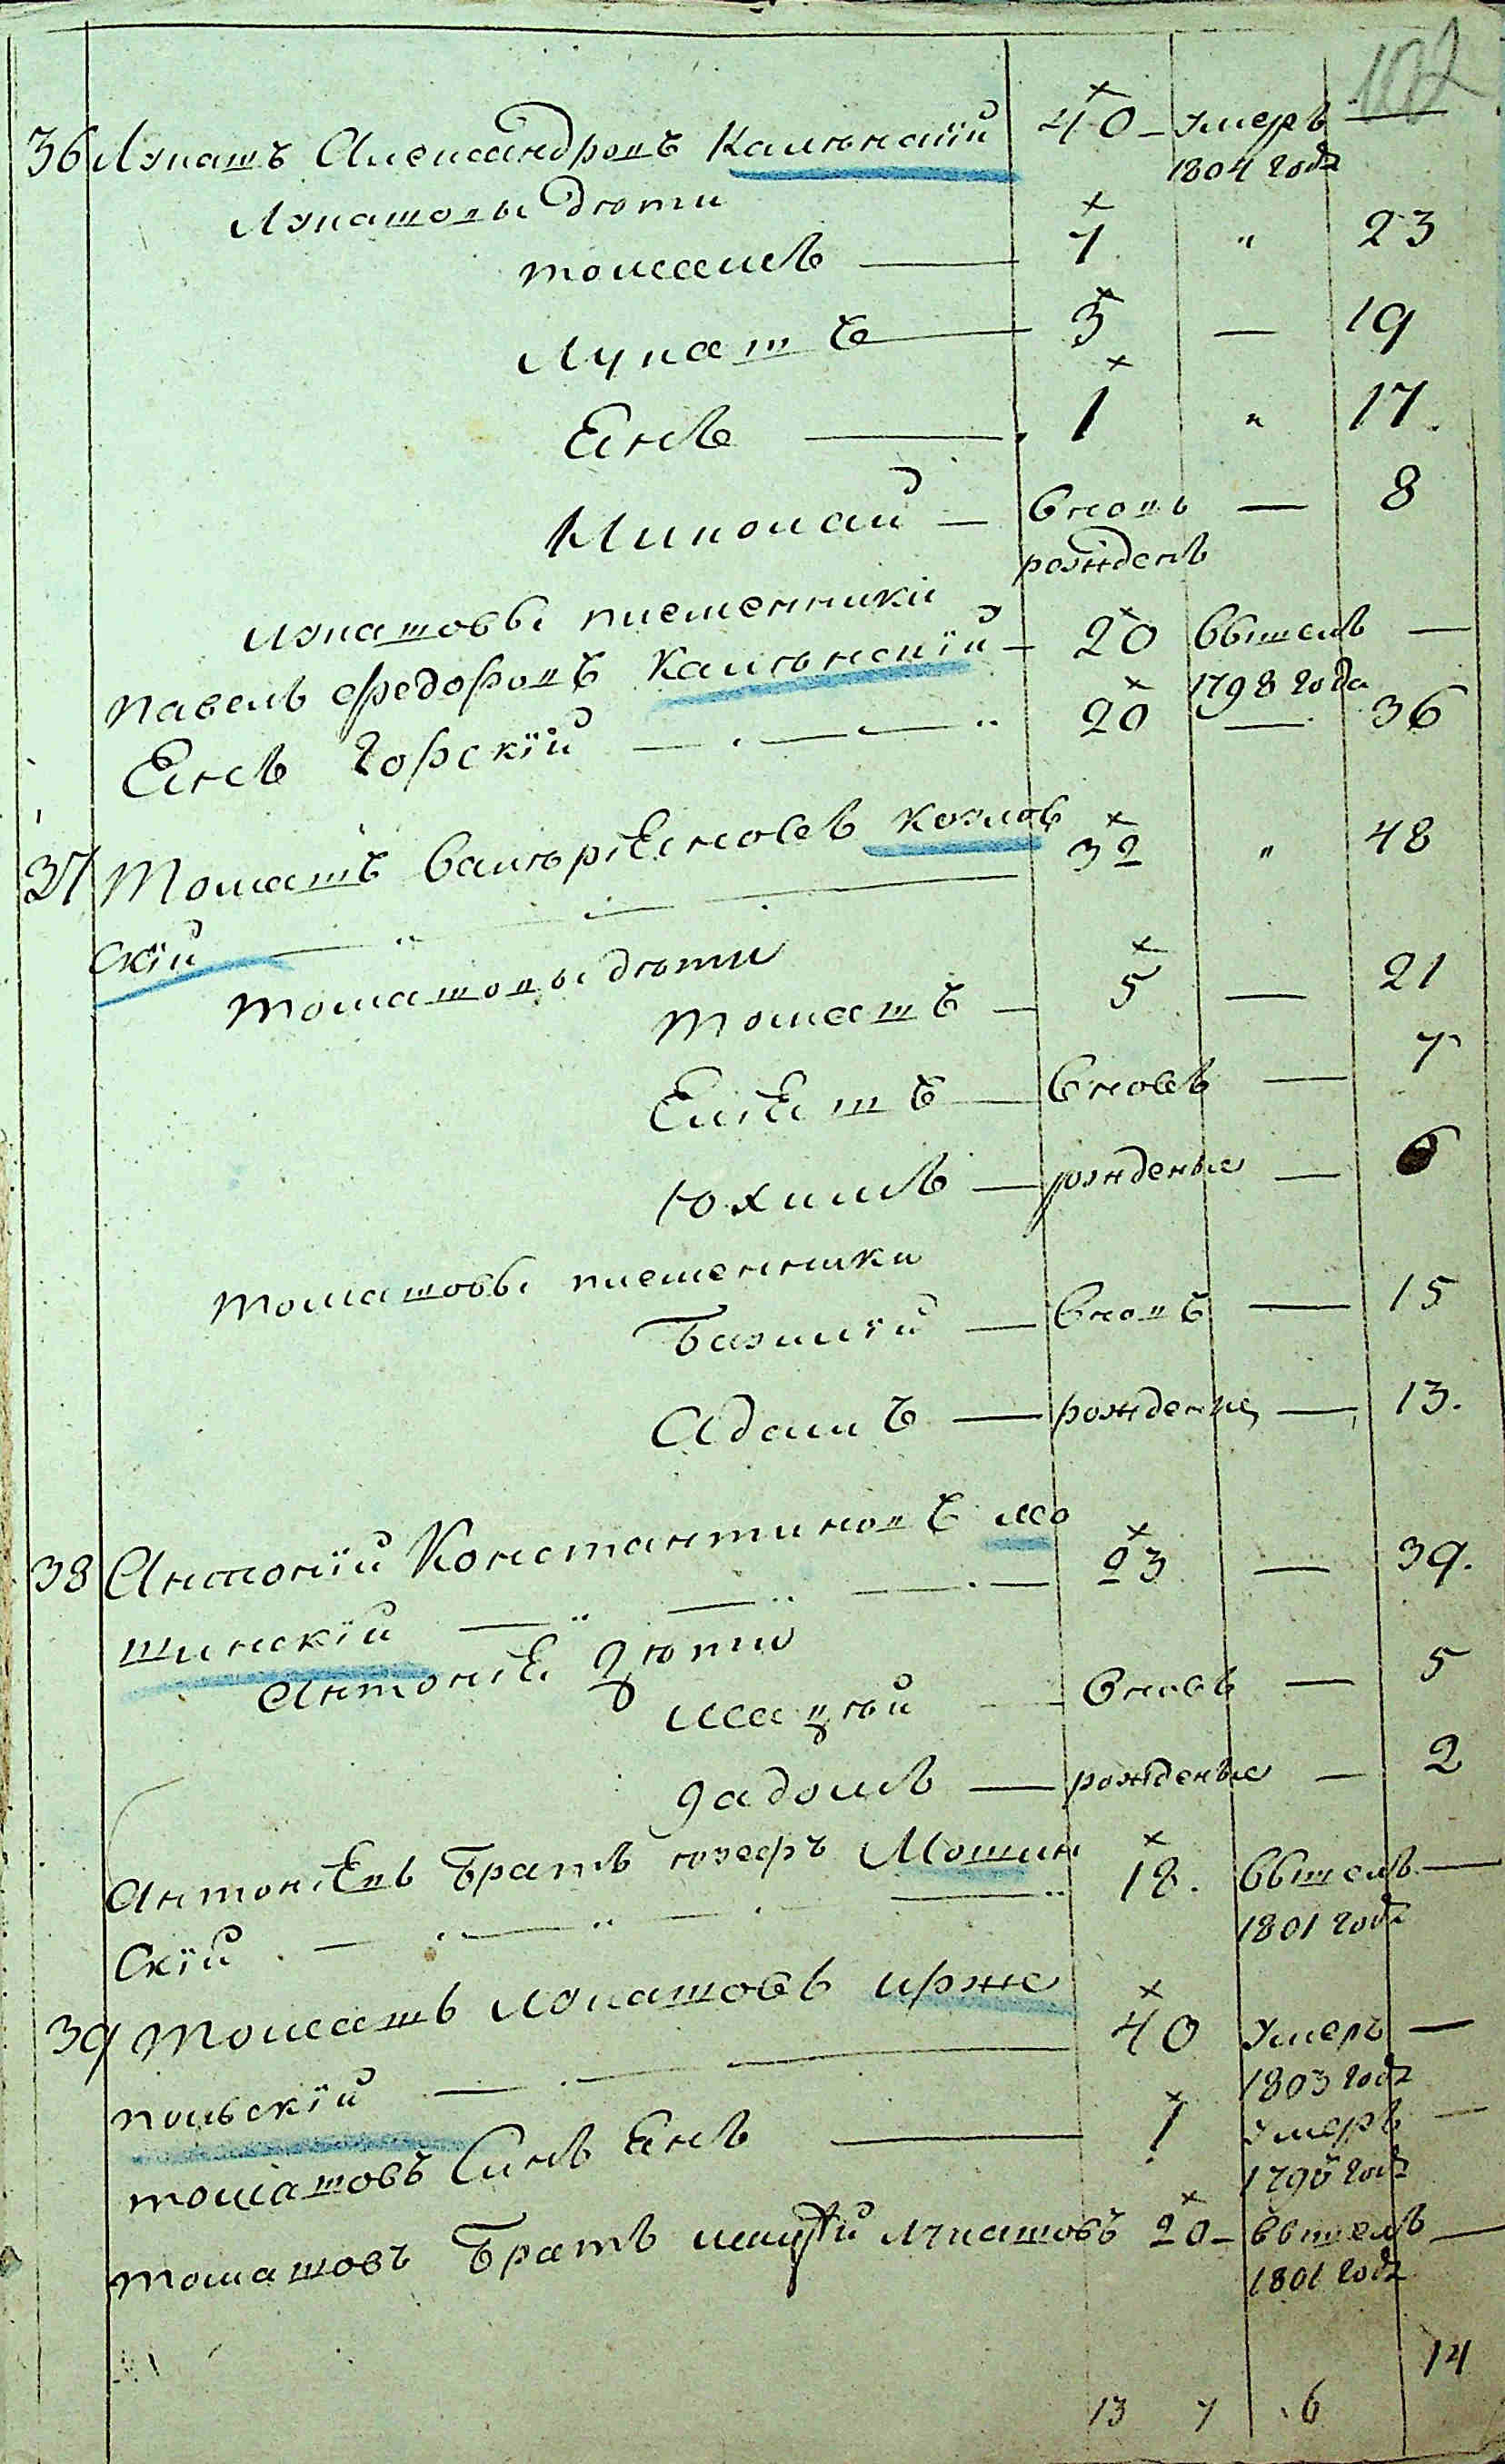 102
36 Лукашъ Александровъ Кальнскій 40 – умеръ —
1804 года
Лукашовы дѣти
томашъ — 7 " 23
Лукашъ — 3 — 19
Янъ — 1 " 17.
Миколай — вновь — 8
рожденъ
Лукашовы племенники
павелъ Федоровъ Кальнскій — 20 вышелъ —
1798 года
Янъ Горскій — 20 — 36
37 Томашъ Валѣріяновъ Козлов 32 " 48
скій —
томашовы дѣти
томашъ — 5 — 21
Еліяшъ — вновь — 7
Юхимъ — рожденые — 6
томашовы племенники
Базилій — вновь — 15
Адамъ — рожденые — 13.
38 Антоній Константиновъ мо 23 — 39.
шинскій —
Антонія дѣти
мацѣй вновь — 5
Задомъ — рожденые — 2
Антоніевъ Братъ юзефъ Мошин 18. вышелъ —
скій 1801 года
39 Томашъ Лукашовъ Ирже 40 умеръ —
польскій — 1803 года
томашовъ Синъ Янъ — 1 умеръ —
1796 года
томашовъ Братъ Лукашовъ 20 – вышелъ —
1801 года
14
13 7 6